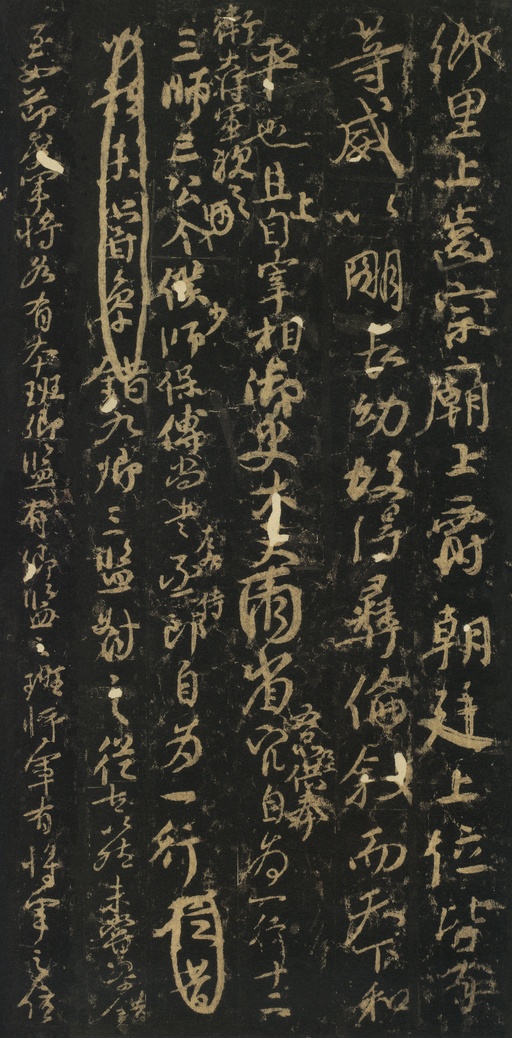 鄉里上齒宗廟上爵朝廷上位皆有
等威以明長幼故得彝倫敘而天下和
平也且上自宰相御史大夫兩省五品以上供奉官自為一行十二
衛大將軍次之三師三公令僕少師保傅尚書左右丞侍郎自為一行
九卿三監對之從古以然未嘗參錯
至如節度軍將各有本班卿監有卿監之班將軍有將軍之位